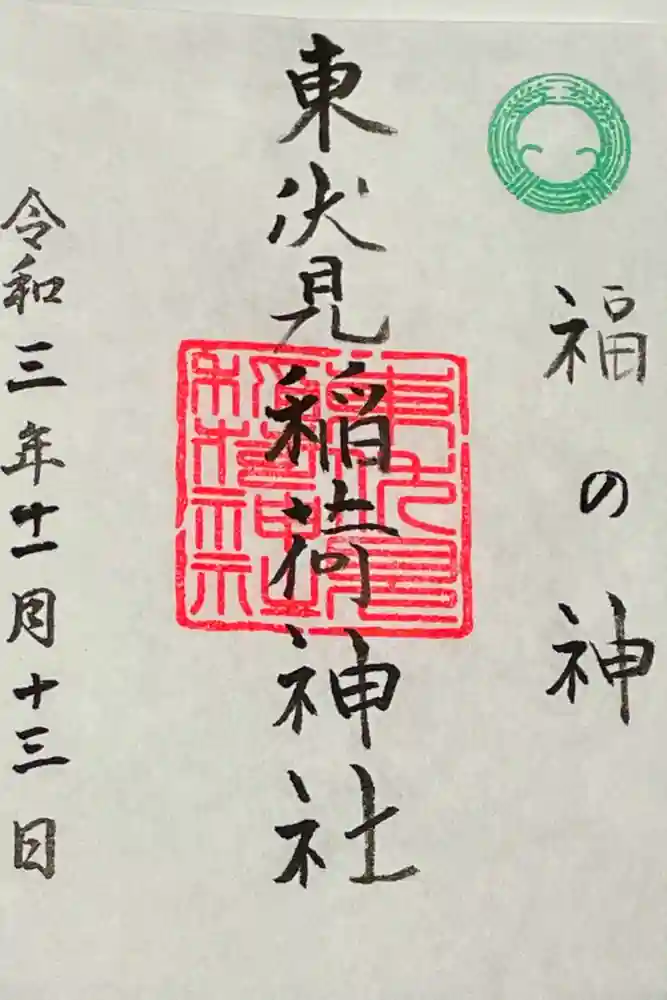 福の神
東伏見稲荷神社
令和三年十一月十三日
東伏見
稲荷神社